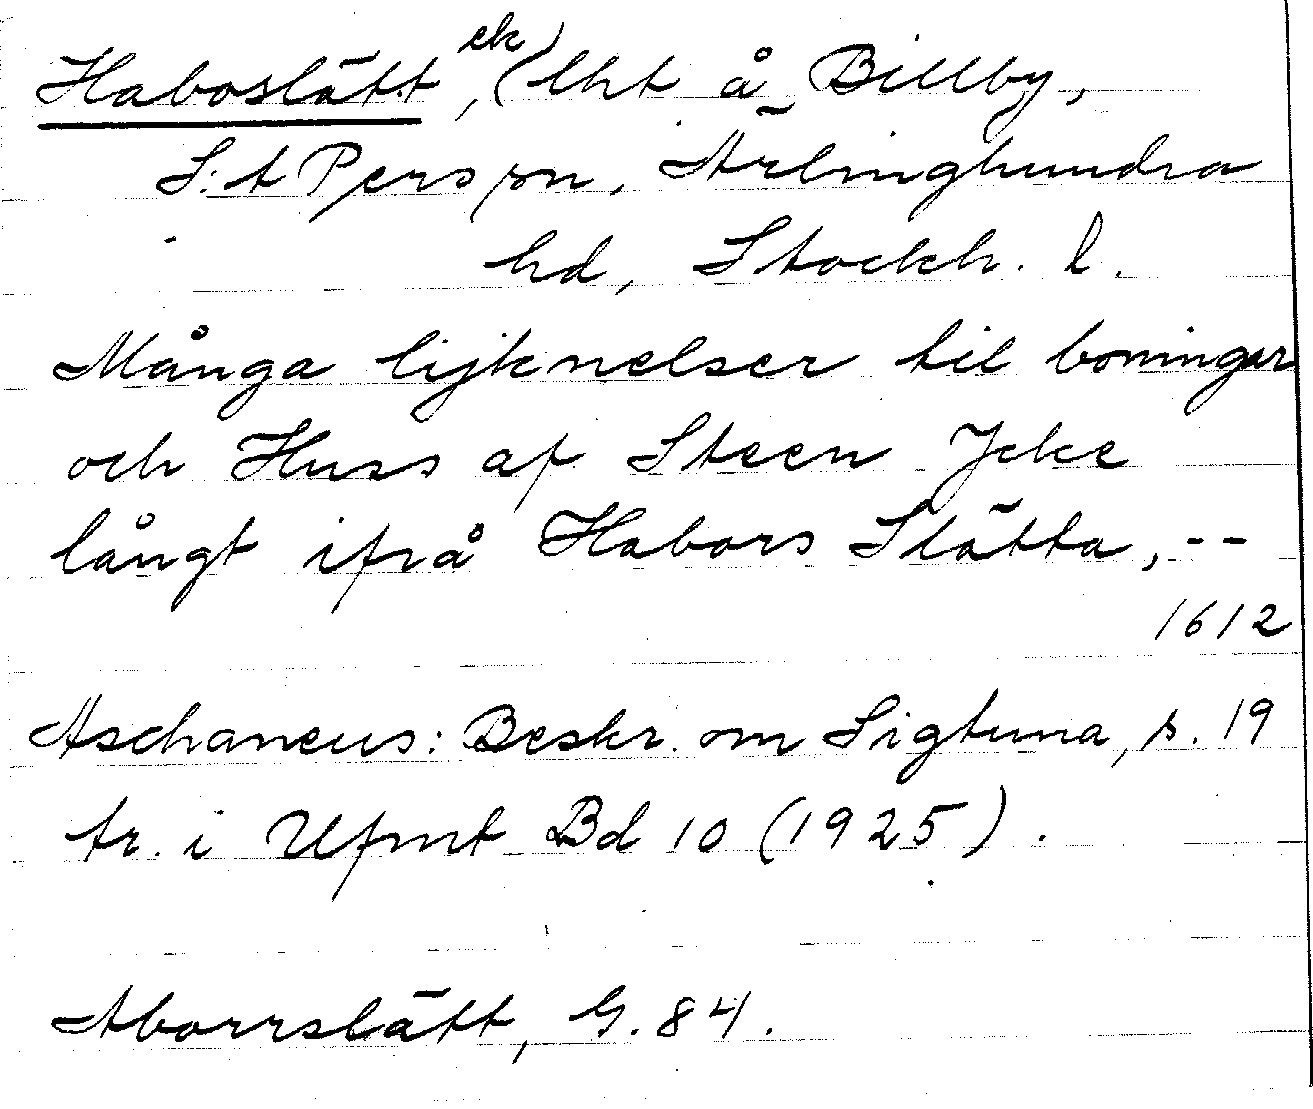 Haboslätt, ek (lht å Billby,
S:t Pers sn, Ärlinghundra
hd, Stockh. l.
Många lijknelser til boningar
och Huss af Steen Jcke
långt ifrå Habors Slätta, --
1612
Aschaneus: Beskr. om Sigtuna, s. 19
tr. i Ufmt Bd 10 (1925).
Aborrslätt, G. 84.